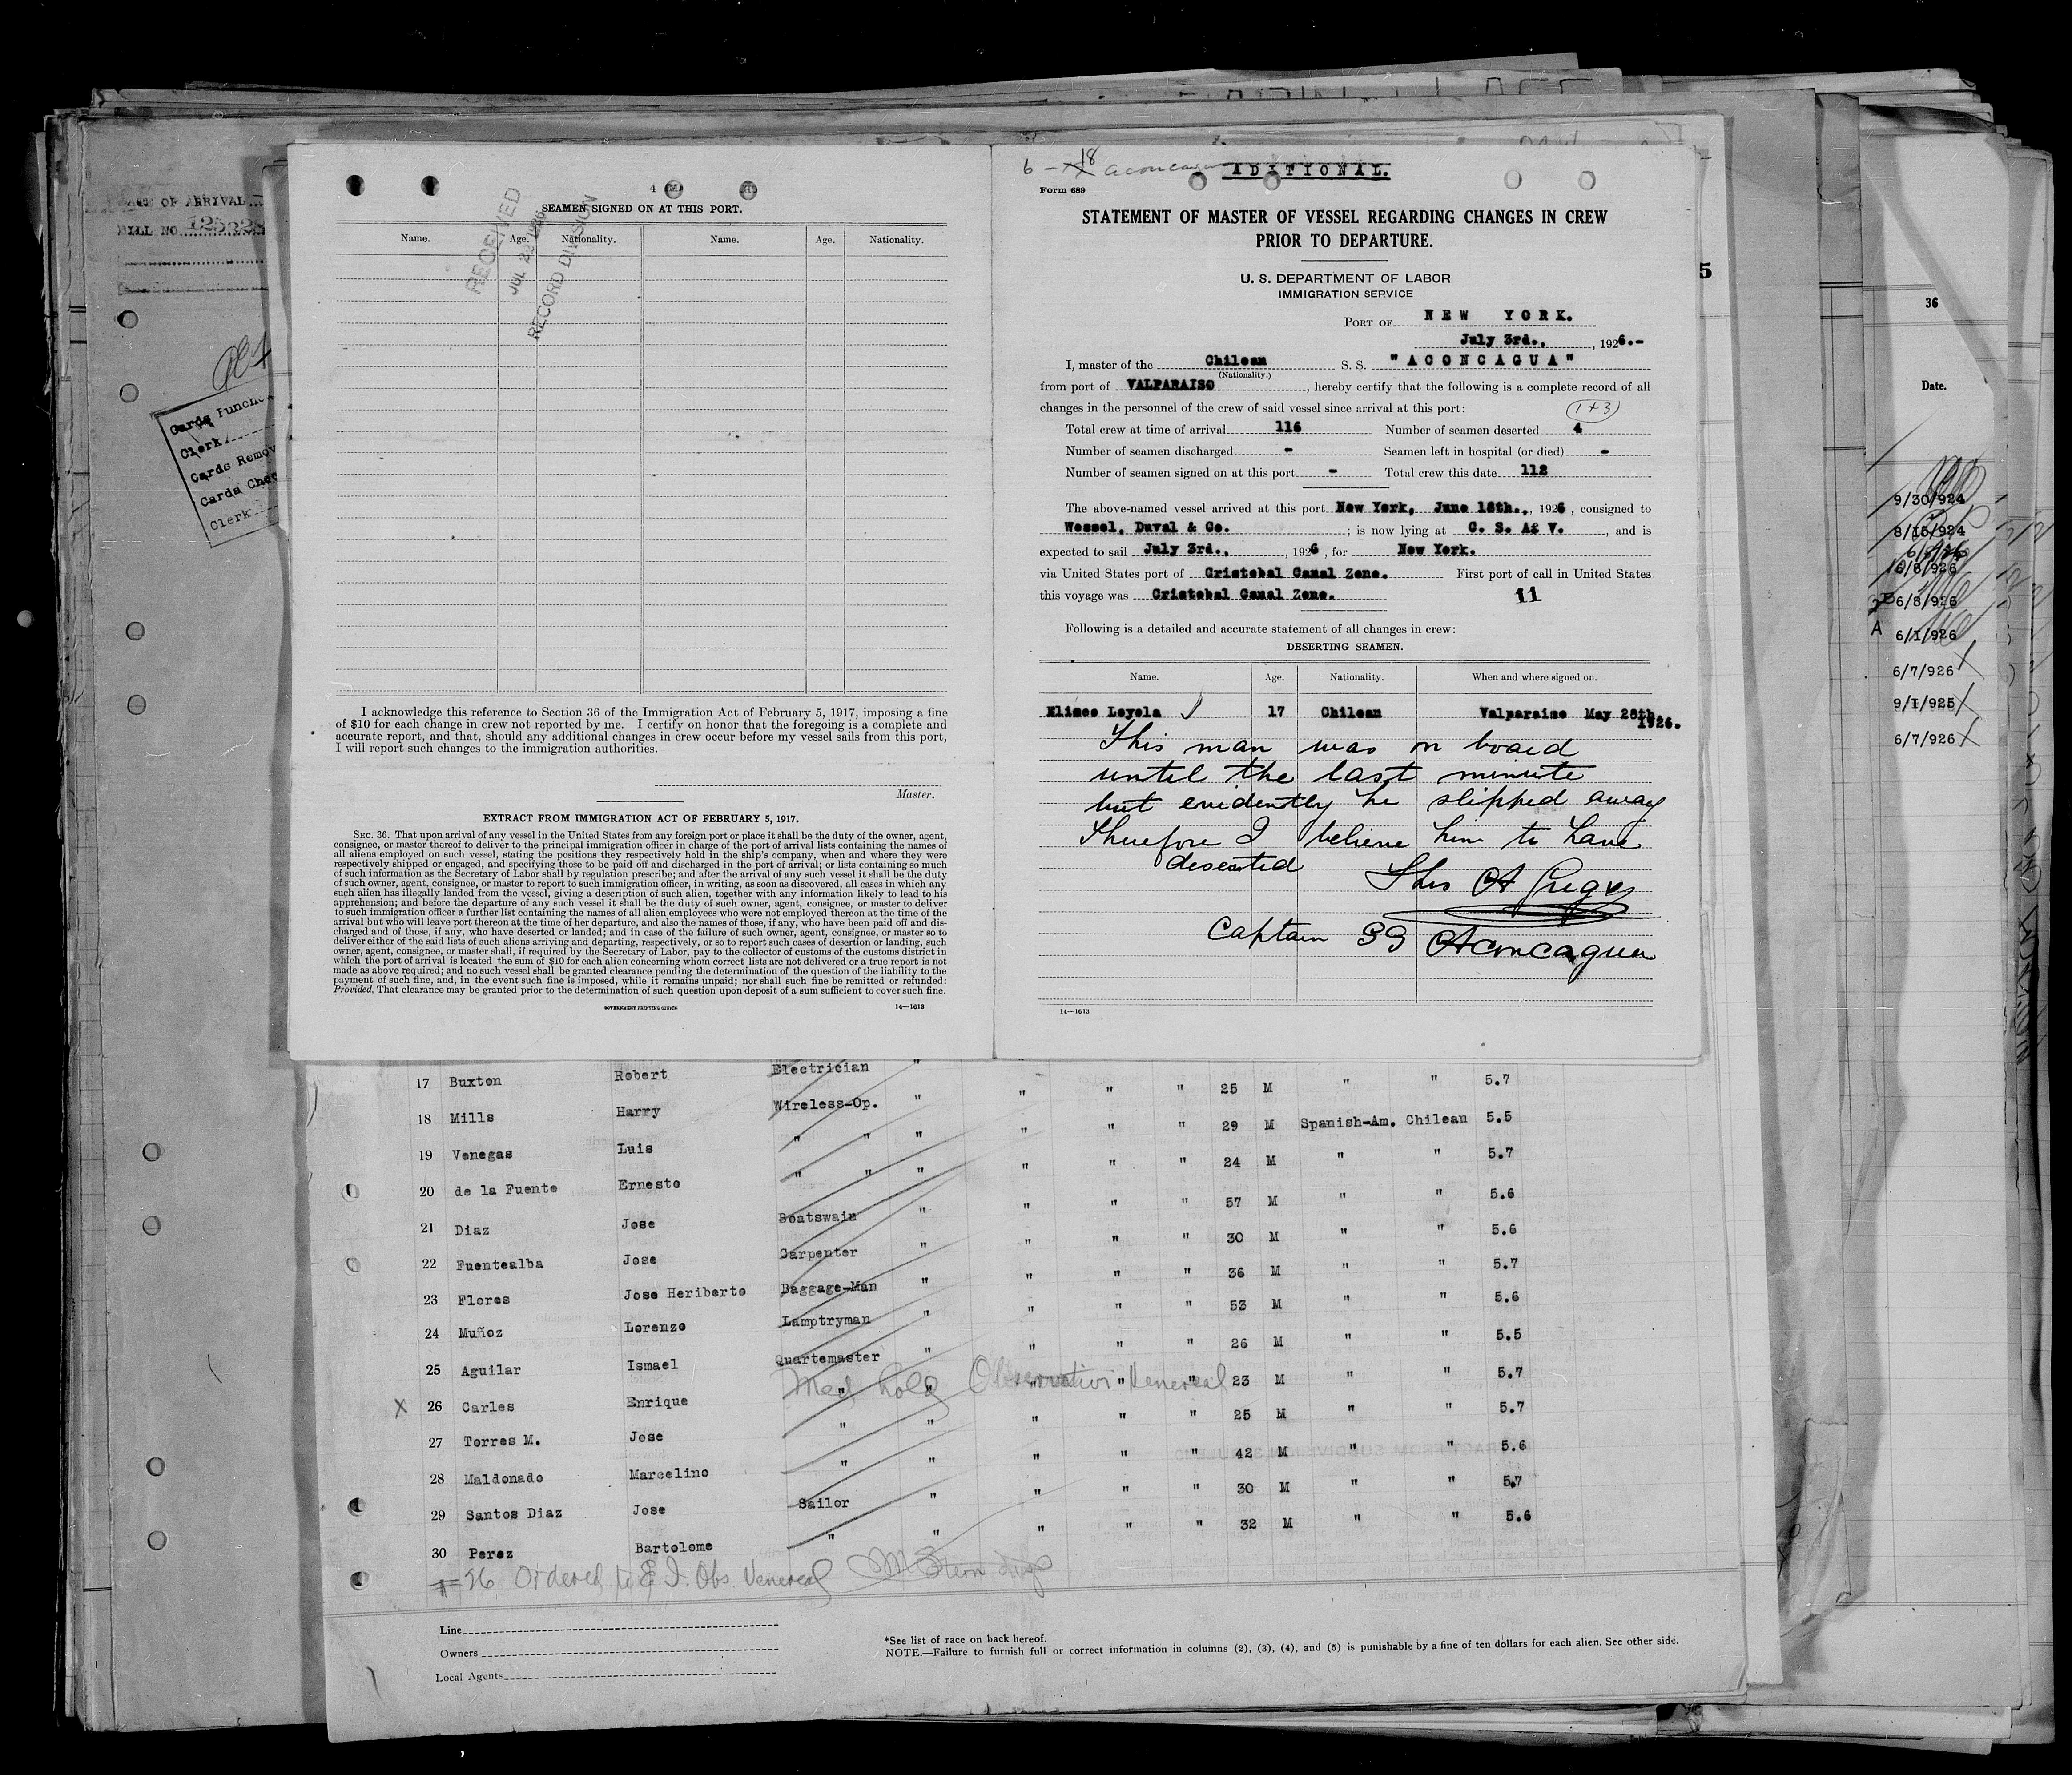 ACT OF ARRIVAL
BILL NO. 125328
Cards Punched
Clerk
Cards Remov
Cards Chec
Clerk
4
RECEIVED
JUL 22 1926
RECORD DIVISION
SEAMEN SIGNED ON AT THIS PORT.
Name. Age. Nationality. Name. Age. Nationality.
I acknowledge this reference to Section 36 of the Immigration Act of February 5, 1917, imposing a fine
of $10 for each change in crew not reported by me. I certify on honor that the foregoing is a complete and
accurate report, and that, should any additional changes in crew occur before my vessel sails from this port,
I will report such changes to the immigration authorities.
Master.
EXTRACT FROM IMMIGRATION ACT OF FEBRUARY 5, 1917.
SEC. 36. That upon arrival of any vessel in the United States from any foreign port or place it shall be the duty of the owner, agent,
consignee, or master thereof to deliver to the principal immigration officer in charge of the port of arrival lists containing the names of
all aliens employed on such vessel, stating the positions they respectively hold in the ship's company, when and where they were
respectively shipped or engaged, and specifying those to be paid off and discharged in the port of arrival; or lists containing so much
of such information as the Secretary of Labor shall by regulation prescribe; and after the arrival of any such vessel it shall be the duty
of such owner, agent, consignee, or master to report to such immigration officer, in writing, as soon as discovered, all cases in which any
such alien has illegally landed from the vessel, giving a description of such alien, together with any information likely to lead to his
apprehension; and before the departure of any such vessel it shall be the duty of such owner, agent, consignee, or master to deliver
to such immigration officer a further list containing the names of all alien employees who were not employed thereon at the time of the
arrival but who will leave port thereon at the time of her departure, and also the names of those, if any, who have been paid off and dis-
charged and of those, if any, who have deserted or landed; and in case of the failure of such owner, agent, consignee, or master so to
deliver either of the said lists of such aliens arriving and departing, respectively, or so to report such cases of desertion or landing, such
owner, agent, consignee, or master shall, if required by the Secretary of Labor, pay to the collector of customs of the customs district in
which the port of arrival is located the sum of $10 for each alien concerning whom correct lists are not delivered or a true report is not
made as above required; and no such vessel shall be granted clearance pending the determination of the question of the liability to the
payment of such fine, and, in the event such fine is imposed, while it remains unpaid; nor shall such fine be remitted or refunded:
Provided, That clearance may be granted prior to the determination of such question upon deposit of a sum sufficient to cover such fine.
GOVERNMENT PRINTING OFFICE 14—1613
6 - 18 Aconcagua
ADITIONAL.
Form 689
STATEMENT OF MASTER OF VESSEL REGARDING CHANGES IN CREW
PRIOR TO DEPARTURE.
U. S. DEPARTMENT OF LABOR
IMMIGRATION SERVICE
PORT OF NEW YORK.
July 3rd., , 1926.-
I, master of the Chilean S. S. "ACONCAGUA"
(Nationality.)
from port of VALPARAISO , hereby certify that the following is a complete record of all
changes in the personnel of the crew of said vessel since arrival at this port: (1+3)
Total crew at time of arrival 116 Number of seamen deserted 4
Number of seamen discharged - Seamen left in hospital (or died) -
Number of seamen signed on at this port - Total crew this date 112
The above-named vessel arrived at this port New York, June 18th., , 1926 , consigned to
Wessel, Duval & Co. ; is now lying at C. S. A& V. , and is
expected to sail July 3rd., , 1926 , for New York.
via United States port of Cristobal Canal Zone. First port of call in United States
this voyage was Cristobal Canal Zone. 11
Following is a detailed and accurate statement of all changes in crew:
DESERTING SEAMEN.
Name. Age. Nationality. When and where signed on.
Eliseo Loyola 17 Chilean Valparaiso May 28th. 1926.
This man was on board
until the last minute
but evidently he slipped away
Therefore I believe him to have
deserted
Captain SS Aconcagua
14—1613
17 Buxton Robert Electrician " " " " 25 M " " 5.7
18 Mills Harry Wireless-Op. " " " " 29 M Spanish-Am. Chilean 5.5
19 Venegas Luis " " " " " " 24 M " " 5.7
20 de la Fuente Ernesto " " " " " " 57 M " " 5.6
21 Diaz Jose Boatswain " " " " 30 M " " 5.6
22 Fuentealba Jose Carpenter " " " " 36 M " " 5.7
23 Flores Jose Heriberto Baggage-Man " " " " 53 M " " 5.6
24 Muñoz Lorenzo Lamptryman " " " " 26 M " " 5.5
25 Aguilar Ismael Quartemaster " " " " 23 M " " 5.7
Med hold Observation Venereal
X 26 Carles Enrique " " " " " 25 M " " 5.7
27 Torres M. Jose " " " " " 42 M " " 5.6
28 Maldonado Marcelino " " " " " 30 M " " 5.7
29 Santos Diaz Jose Sailor " " " " 32 M " " 5.6
30 Perez Bartolome " "
# 26 Ordered to E. I. Obs. Venereal
Line
Owners
Local Agents
*See list of race on back hereof.
NOTE.—Failure to furnish full or correct information in columns (2), (3), (4), and (5) is punishable by a fine of ten dollars for each alien. See other side.
5
36
Date.
9/30/924
8/15/924
6/8/926
6/8/926
A 6/1/926
6/7/926
9/1/925
6/7/926